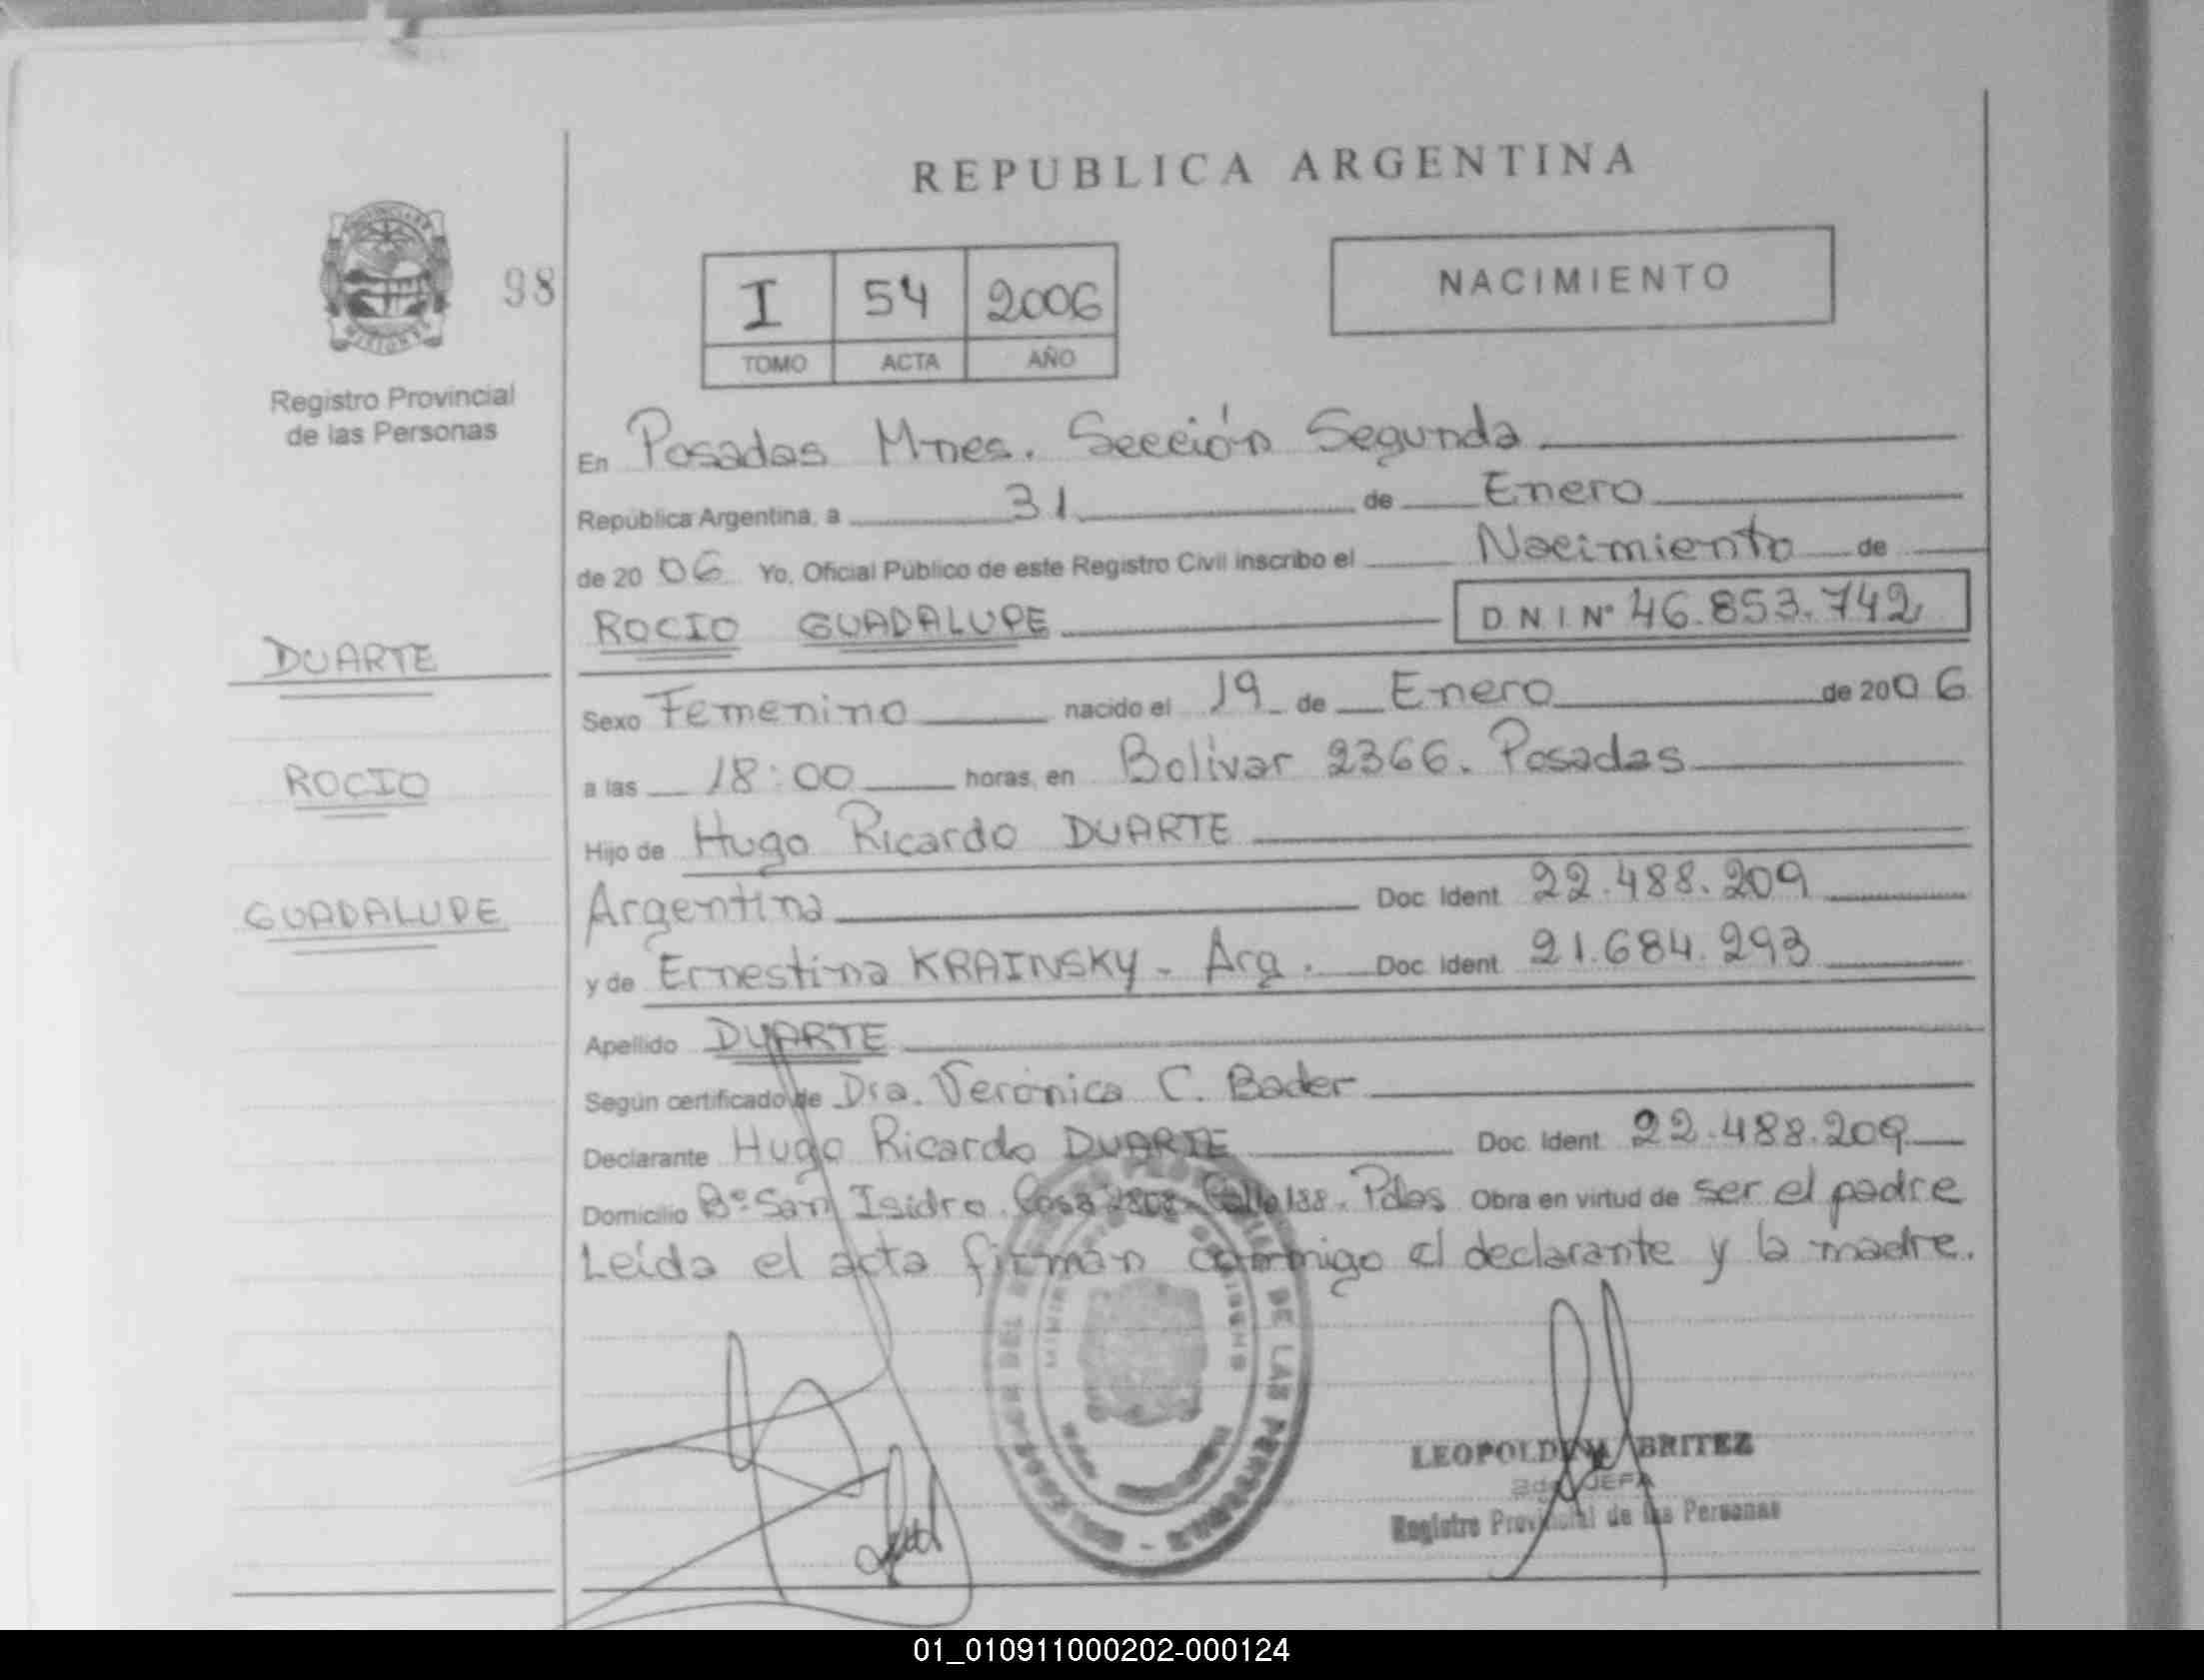 REPUBLICA ARGENTINA
98
I 54 2006
TOMO ACTA AÑO
NACIMIENTO
MISIONES
Registro Provincial
de las Personas
En Posadas Mnes. Sección Segunda
República Argentina, a 31 de Enero
de 2006 Yo, Oficial Público de este Registro Civil inscribo el Nacimiento de
ROCIO GUADALUPE D.N.I. Nº 46.853.742
DUARTE
ROCIO
GUADALUPE
Sexo Femenino nacido el 19 de Enero de 2006
a las 18:00 horas, en Bolivar 2366. Posadas
Hijo de Hugo Ricardo DUARTE
Argentina Doc. Ident. 22.488.209
y de Ernestina KRAINSKY - Arg. Doc. Ident. 21.684.293
Apellido DUARTE
Según certificado de Dra. Verónica C. Bader
Declarante Hugo Ricardo DUARTE Doc. Ident. 22.488.209
Domicilio Bº San Isidro. Casa Calle 188. Pdas Obra en virtud de ser el padre
Leída el acta firman conmigo el declarante y la madre.
DE LAS PERSONAS
BRITEZ
2da JEFA
Registro Provincial de las Personas
01_010911000202-000124